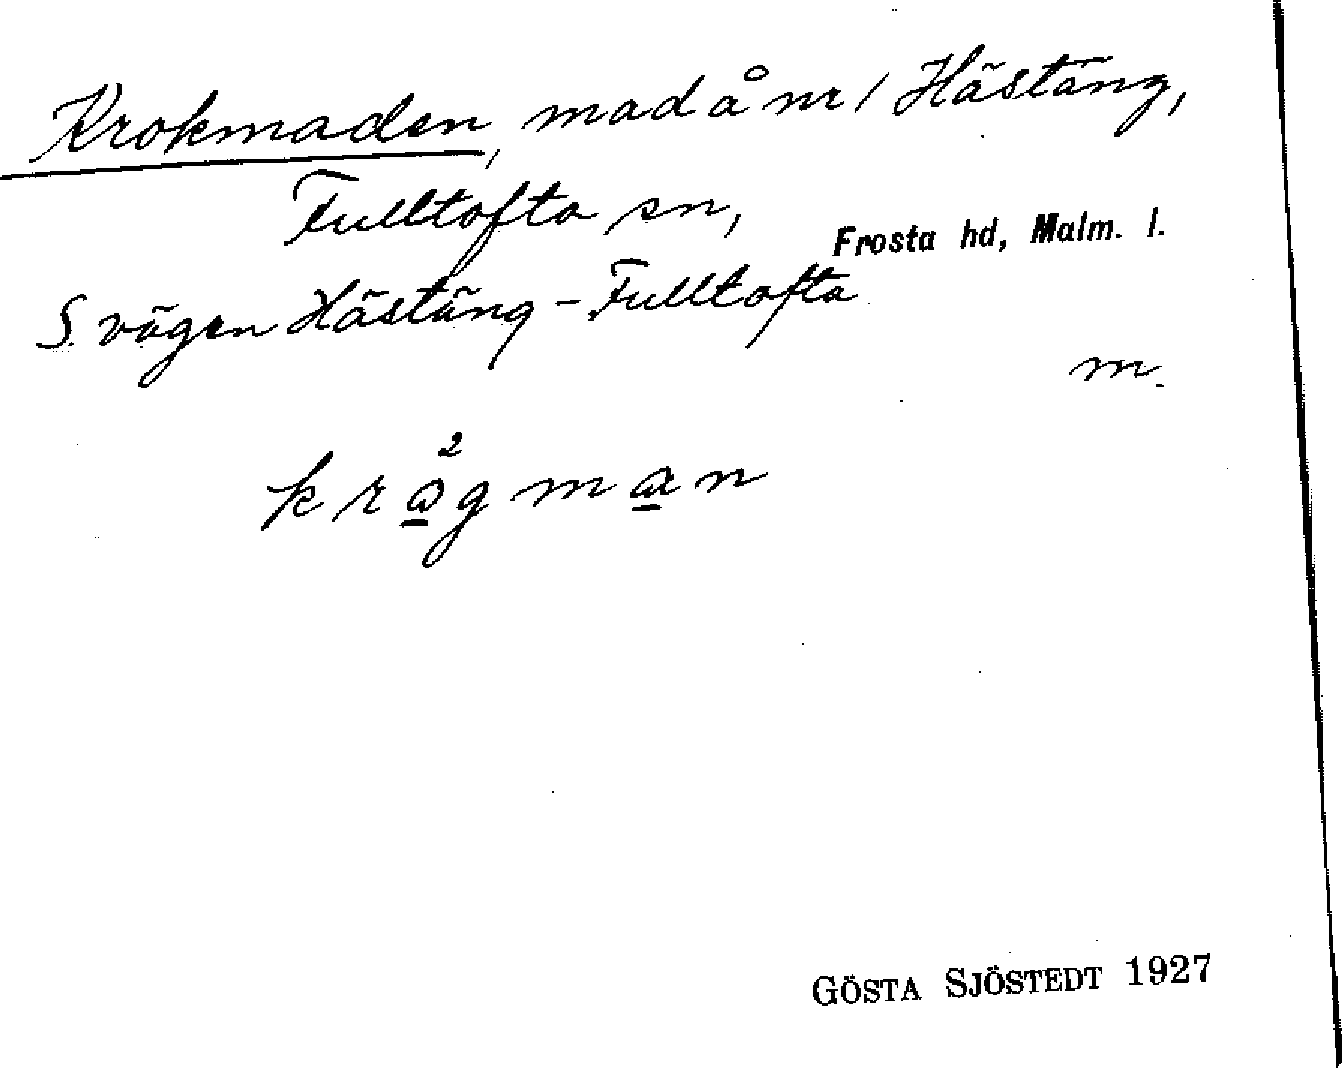 Krokmaden, mad å nr 1 Hästäng,
Fulltofta sn,
Frosta hd, Malm. l.
S. vägen Hästäng - Fulltofta
m.
krå²gman
GÖSTA SJÖSTEDT 1927